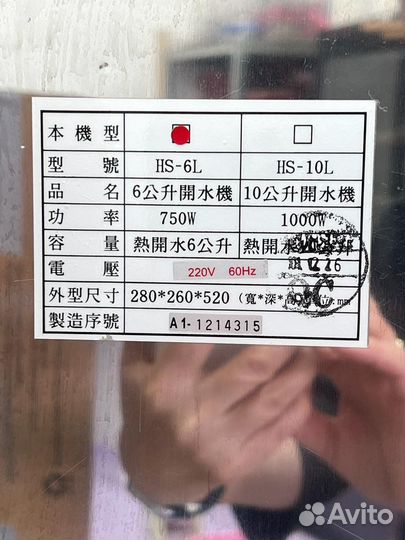 本機型
型號 HS-6L HS-10L
品名 6公升開水機 10公升開水機
功率 750W 1000W
容量 熱開水6公升 熱開水
電壓 220V 60Hz
外型尺寸 280*260*520 (寬*深*
製造序號 A1-1214315
Avito